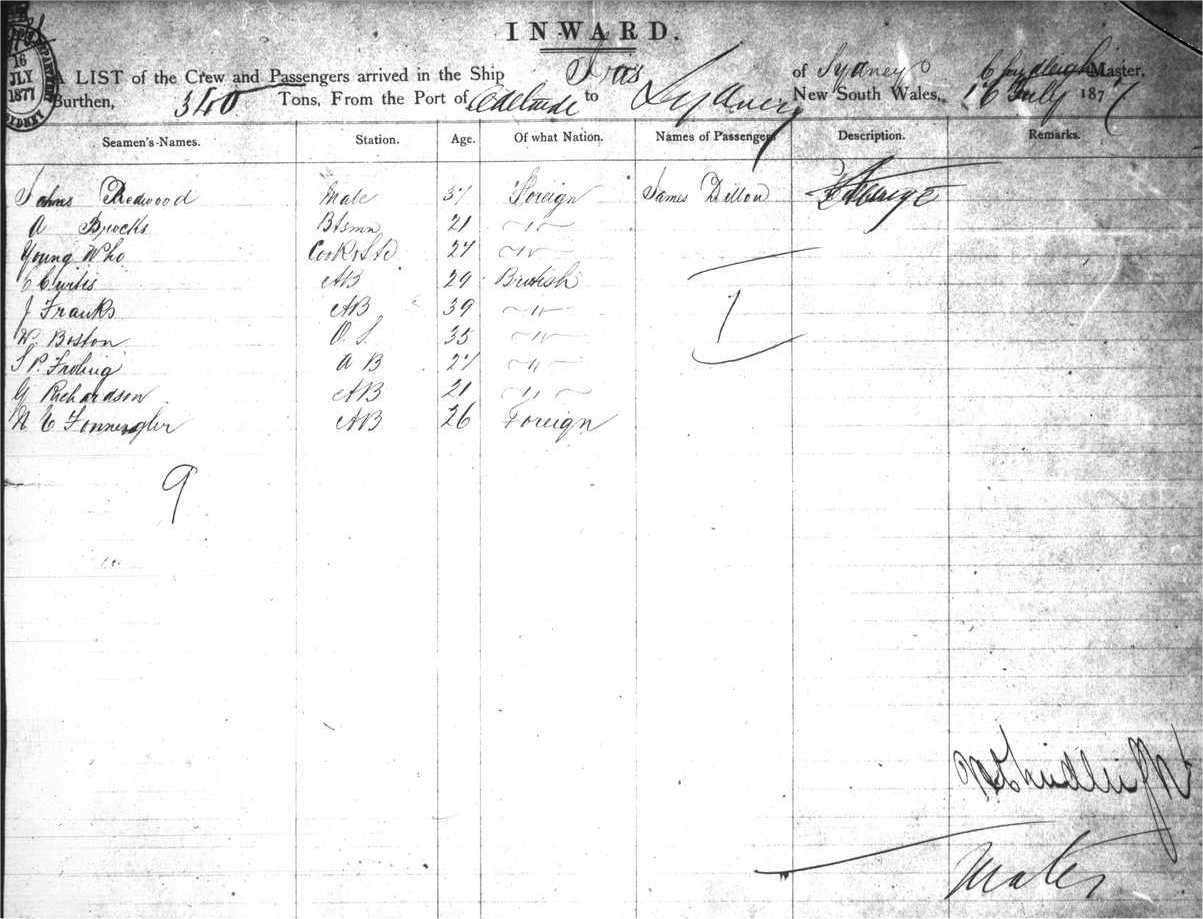 INWARD.
16
JLY
1877
SYDNEY
A LIST of the Crew and Passengers arrived in the Ship of Sydney Master,
Burthen, 340 Tons, From the Port of Adelaide to Sydney New South Wales, 16 July 1877
Seamen's Names. Station. Age. Of what Nation. Names of Passengers Description. Remarks.
Redwood Mate 37 Foreign James Dillon Steerage
A Brocks Btsmn 21 〃
Young Who Cook & Std 27 〃
C Curtis AB 29 British
J Franks AB 39 〃 1
W. Boston O.S. 35 〃
A B 27 〃
G Richardson AB 21 〃
AB 26 Foreign
9